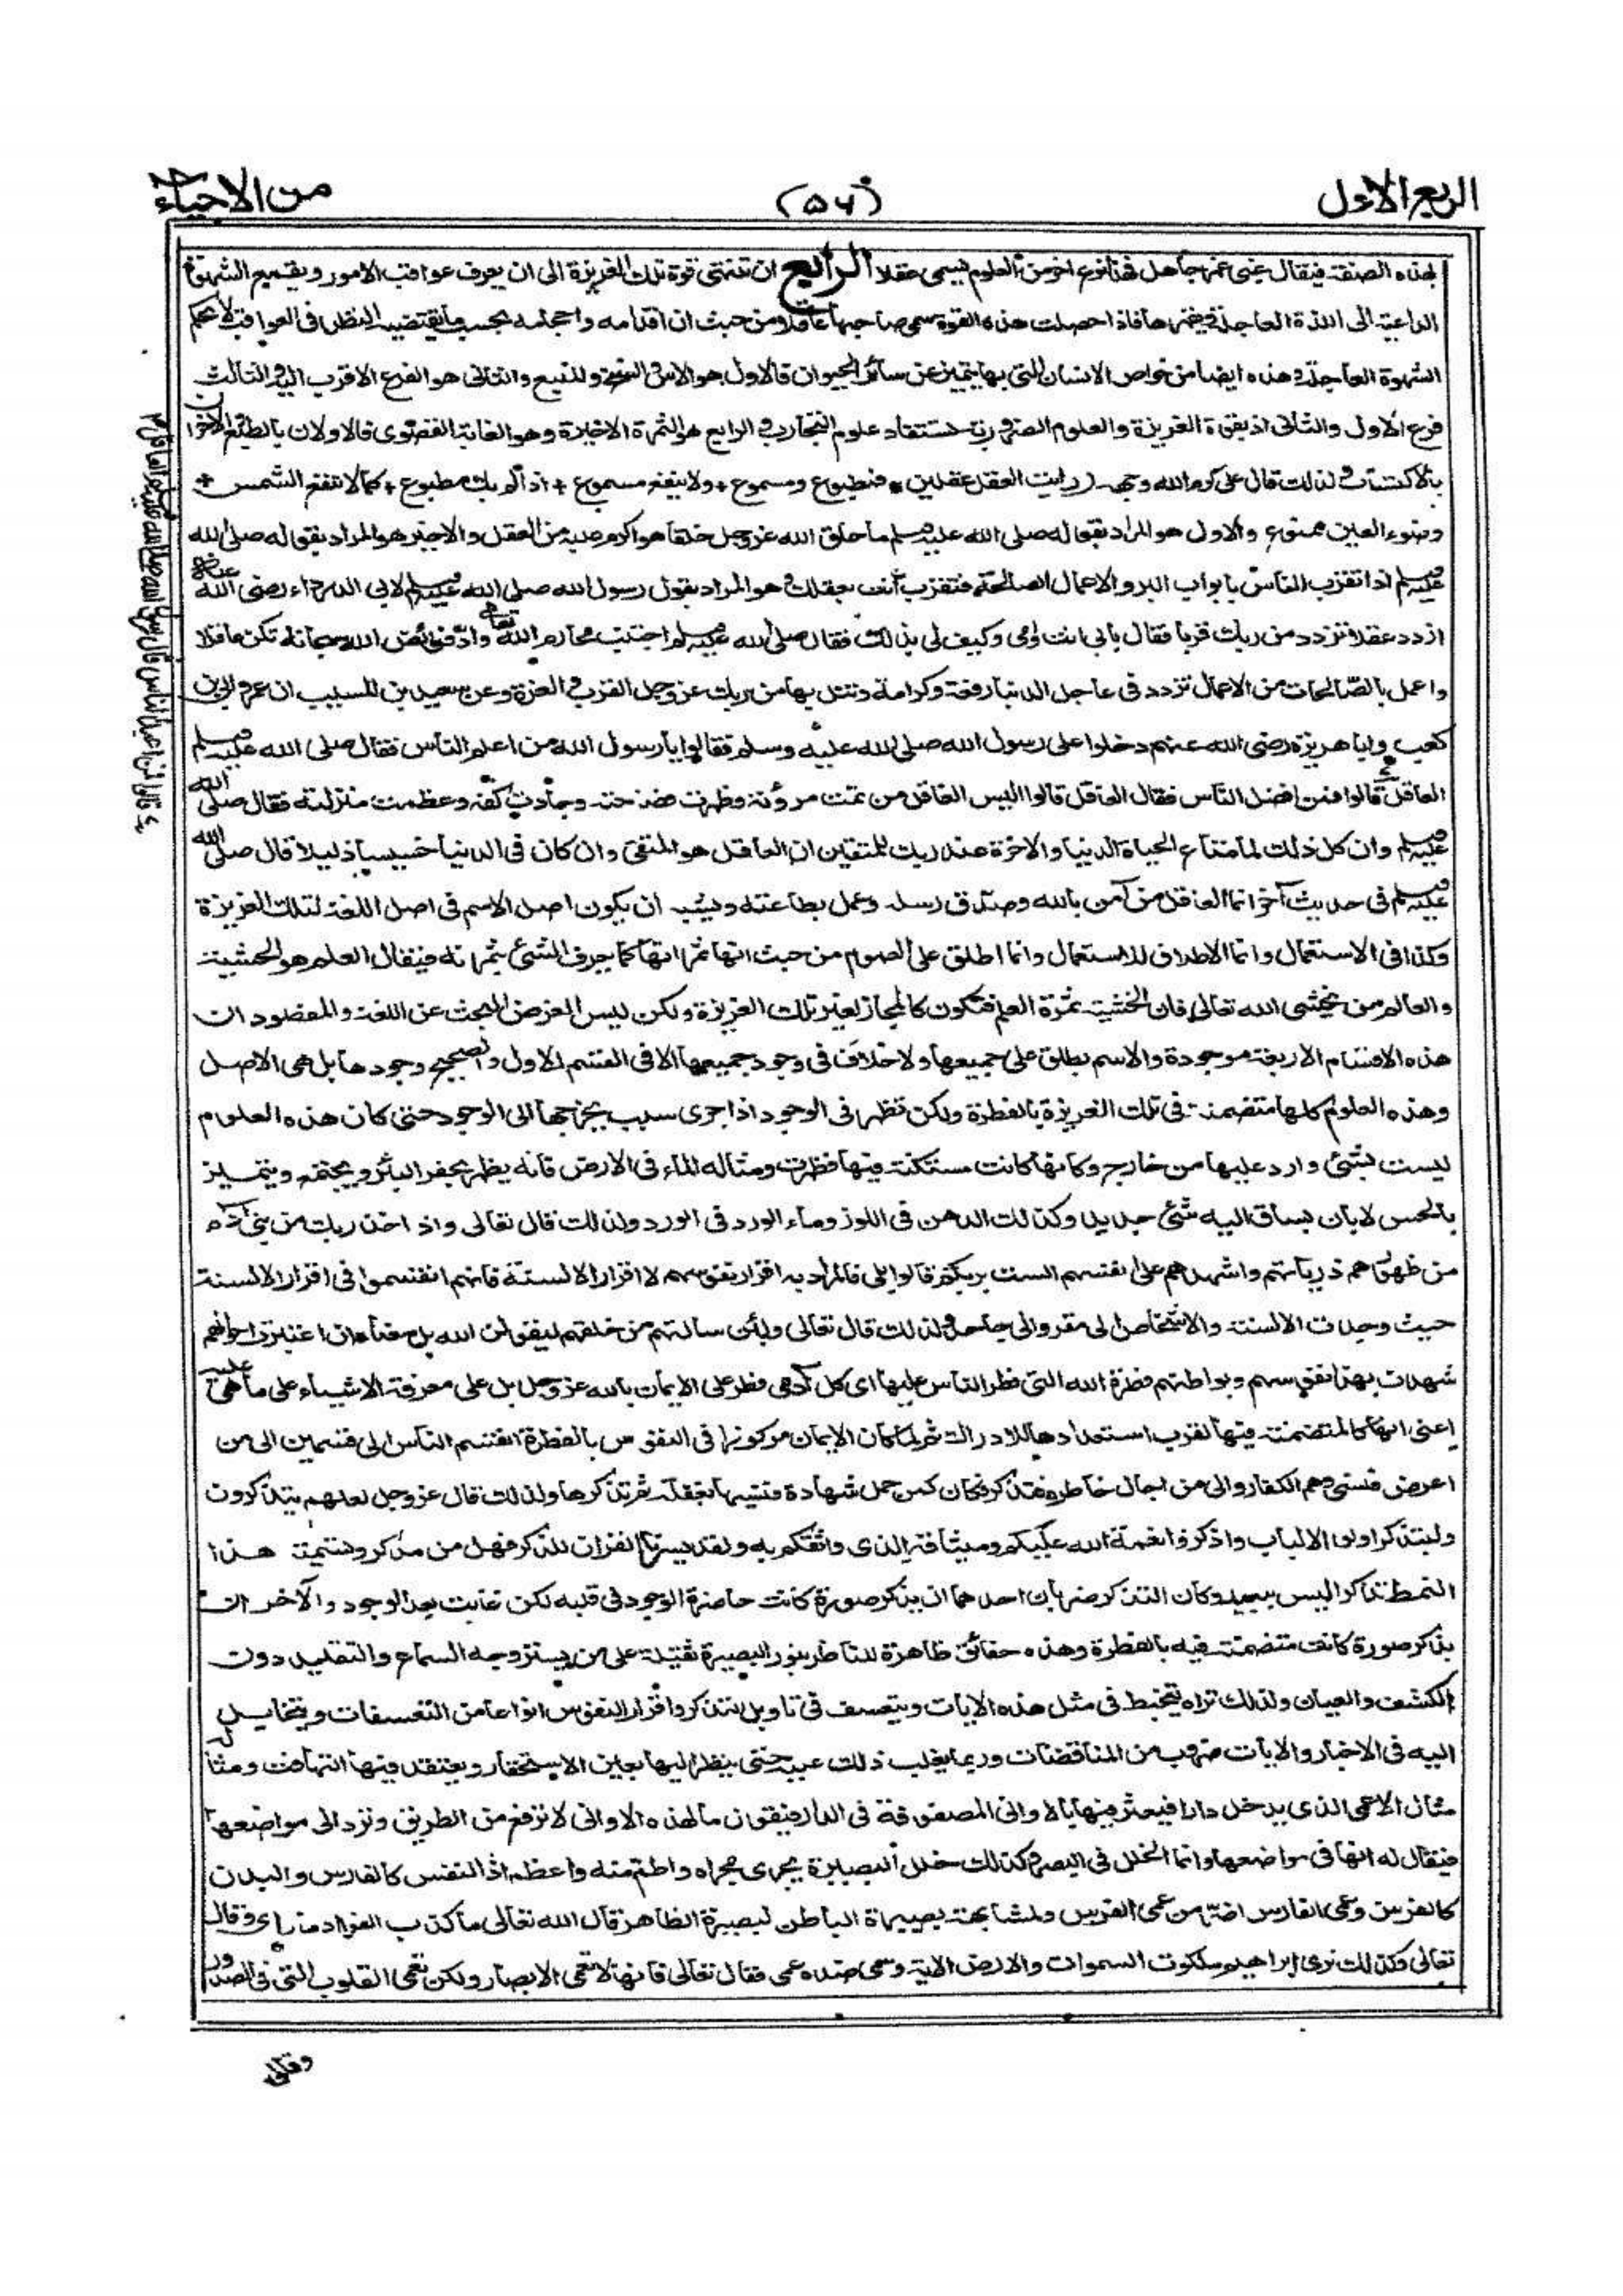 الربع الاول
(۵۶)
من الاحياء
بهذه الصفة فيقال غبي غمر جاهل فهذا نوع اخر من العلوم يسمى عقلا الرابع ان تنتهي قوة تلك الغريزة الى ان يعرف عواقب الامور ويقمع الشهوة
الداعية الى اللذة العاجلة ويقهرها فاذا حصلت هذه القوة سمى صاحبها عاقلا ومن حيث ان اقدامه واحجامه بحسب ما يقتضيه النظر فى العواقب لا بحكم
الشهوة العاجلة وهذه ايضا من خواص الانسان التى بها يتميز عن سائر الحيوان فالاول هو الاس والسنخ والمنبع والثانى هو الفرع الاقرب اليه والثالث
فرع الاول والثانى اذ بقوة الغريزة والعلوم الضرورية تستفاد علوم التجارب والرابع هو الثمرة الاخيرة وهو الغاية القصوى فالاولان بالطبع والاخران
بالاكتساب ولذلك قال على كرم الله وجهه رايت العقل عقلين * فمطبوع ومسموع + ولا ينفع مسموع + اذا لم يك مطبوع + كما لا تنفع الشمس +
وضوء العين ممنوع والاول هو المراد بقوله صلى الله عليه وسلم ما خلق الله عز وجل خلقا هو اكرم عليه من العقل والاخير هو المراد بقوله صلى الله
عليه وسلم اذا تقرب الناس بابواب البر والاعمال الصالحة فتقرب انت بعقلك وهو المراد بقول رسول الله صلى الله عليه وسلم لابى الدرداء رضى الله عنه
ازدد عقلا تزدد من ربك قربا فقال بابى انت وامى وكيف لى بذلك فقال صلى الله عليه وسلم اجتنب محارم الله تعالى واد فرائض الله سبحانه تكن عاقلا
واعمل بالصالحات من الاعمال تزدد فى عاجل الدنيا رفعة وكرامة وتنل بها من ربك عز وجل القرب والعزة وعن سعيد بن المسيب ان عمر وابى بن
كعب وابا هريرة رضى الله عنهم دخلوا على رسول الله صلى الله عليه وسلم فقالوا يا رسول الله من اعلم الناس فقال صلى الله عليه وسلم
العاقل قالوا فمن افضل الناس فقال العاقل قالوا اليس العاقل من تمت مروئته وظهرت فصاحته وجادت كفه وعظمت منزلته فقال صلى الله
عليه وسلم وان كل ذلك لما متاع الحياة الدنيا والاخرة عند ربك للمتقين ان العاقل هو المتقى وان كان فى الدنيا خسيسا ذليلا قال صلى الله
عليه وسلم فى حديث آخر انما العاقل من آمن بالله وصدق رسله وعمل بطاعته ويشبه ان يكون اصل الاسم فى اصل اللغة لتلك الغريزة
وكذا فى الاستعمال وانما اطلق على العلوم من حيث انها ثمراتها كما يعرف الشئ بثمرته فيقال العلم هو الخشية
والعالم من يخشى الله تعالى فان الخشية ثمرة العلم فتكون كالمجاز لغير تلك الغريزة ولكن ليس الغرض البحث عن اللغة والمقصود ان
هذه الاقسام الاربعة موجودة والاسم يطلق على جميعها ولا خلاف فى وجود جميعها الا فى القسم الاول والصحيح وجودها بل هى الاصل
وهذه العلوم كلها متضمنة فى تلك الغريزة بالفطرة ولكن تظهر فى الوجود اذا جرى سبب يخرجها الى الوجود حتى كان هذه العلوم
ليست بشئ وارد عليها من خارج وكانها كانت مستكنة فيها فظهرت ومثاله الماء فى الارض فانه يظهر بحفر البئر ويجتمع ويتميز
بالحس لا بان يساق اليه شئ جديد وكذلك الدهن فى اللوز وماء الورد فى الورد ولذلك قال تعالى واذ اخذ ربك من بنى آدم
من ظهورهم ذرياتهم واشهدهم على انفسهم الست بربكم قالوا بلى فالمراد به اقرار نفوسهم لا اقرار الالسنة فانهم انقسموا فى اقرار الالسنة
حيث وجدت الالسنة والاشخاص الى مقر والى جاحد ولذلك قال تعالى ولئن سالتهم من خلقهم ليقولن الله بل معناه ان اعتبرت احوالهم
شهدت بهذا نفوسهم وبواطنهم فطرة الله التى فطر الناس عليها اى كل آدمى فطر على الايمان بالله عز وجل بل على معرفة الاشياء على ما هى عليه
اعنى انها كالمتضمنة فيها لقرب استعدادها للادراك ثم لما كان الايمان مركوزا فى النفوس بالفطرة انقسم الناس الى قسمين الى من
اعرض فنسى وهم الكفار والى من اجال خاطره فتذكر فكان كمن حمل شهادة فنسيها بغفلة ثم تذكرها ولذلك قال عز وجل لعلهم يتذكرون
وليتذكر اولوا الالباب واذكروا نعمة الله عليكم وميثاقه الذى واثقكم به ولقد يسرنا القرآن للذكر فهل من مدكر وتسمية هذا
النمط تذكرا ليس ببعيد وكان التذكر ضربان احدهما ان يذكر صورة كانت حاضرة الوجود فى قلبه لكن غابت بعد الوجود والآخر ان
يذكر صورة كانت متضمنة فيه بالفطرة وهذه حقائق ظاهرة للناظر بنور البصيرة ثقيلة على من يستروجه السماع والتقليد دون
الكشف والعيان ولذلك تراه يتخبط فى مثل هذه الايات ويتعسف فى تاويل التذكر واقرار النفوس انواعا من التعسفات ويتخايل
اليه فى الاخبار والايات ضروب من المناقضات وربما يغلب ذلك عليه حتى ينظر اليها بعين الاستحقار ويعتقد فيها التهافت ومثاله
مثال الاعمى الذى يدخل دارا فيعثر فيها بالاوانى المصفوفة فى الدار فيقول ما لهذه الاوانى لا ترفع من الطريق وترد الى مواضعها
فيقال له انها فى مواضعها وانما الخلل فى البصر فكذلك خلل البصيرة يجرى مجراه واطم منه واعظم اذ النفس كالفارس والبدن
كالفرس وعمى الفارس اضر من عمى الفرس ولمشابهة بصيرة الباطن لبصيرة الظاهر قال الله تعالى ما كذب الفواد ما راى وقال
تعالى وكذلك نرى ابراهيم ملكوت السموات والارض الاية وسمى ضده عمى فقال تعالى فانها لا تعمى الابصار ولكن تعمى القلوب التى فى الصدور
وقال